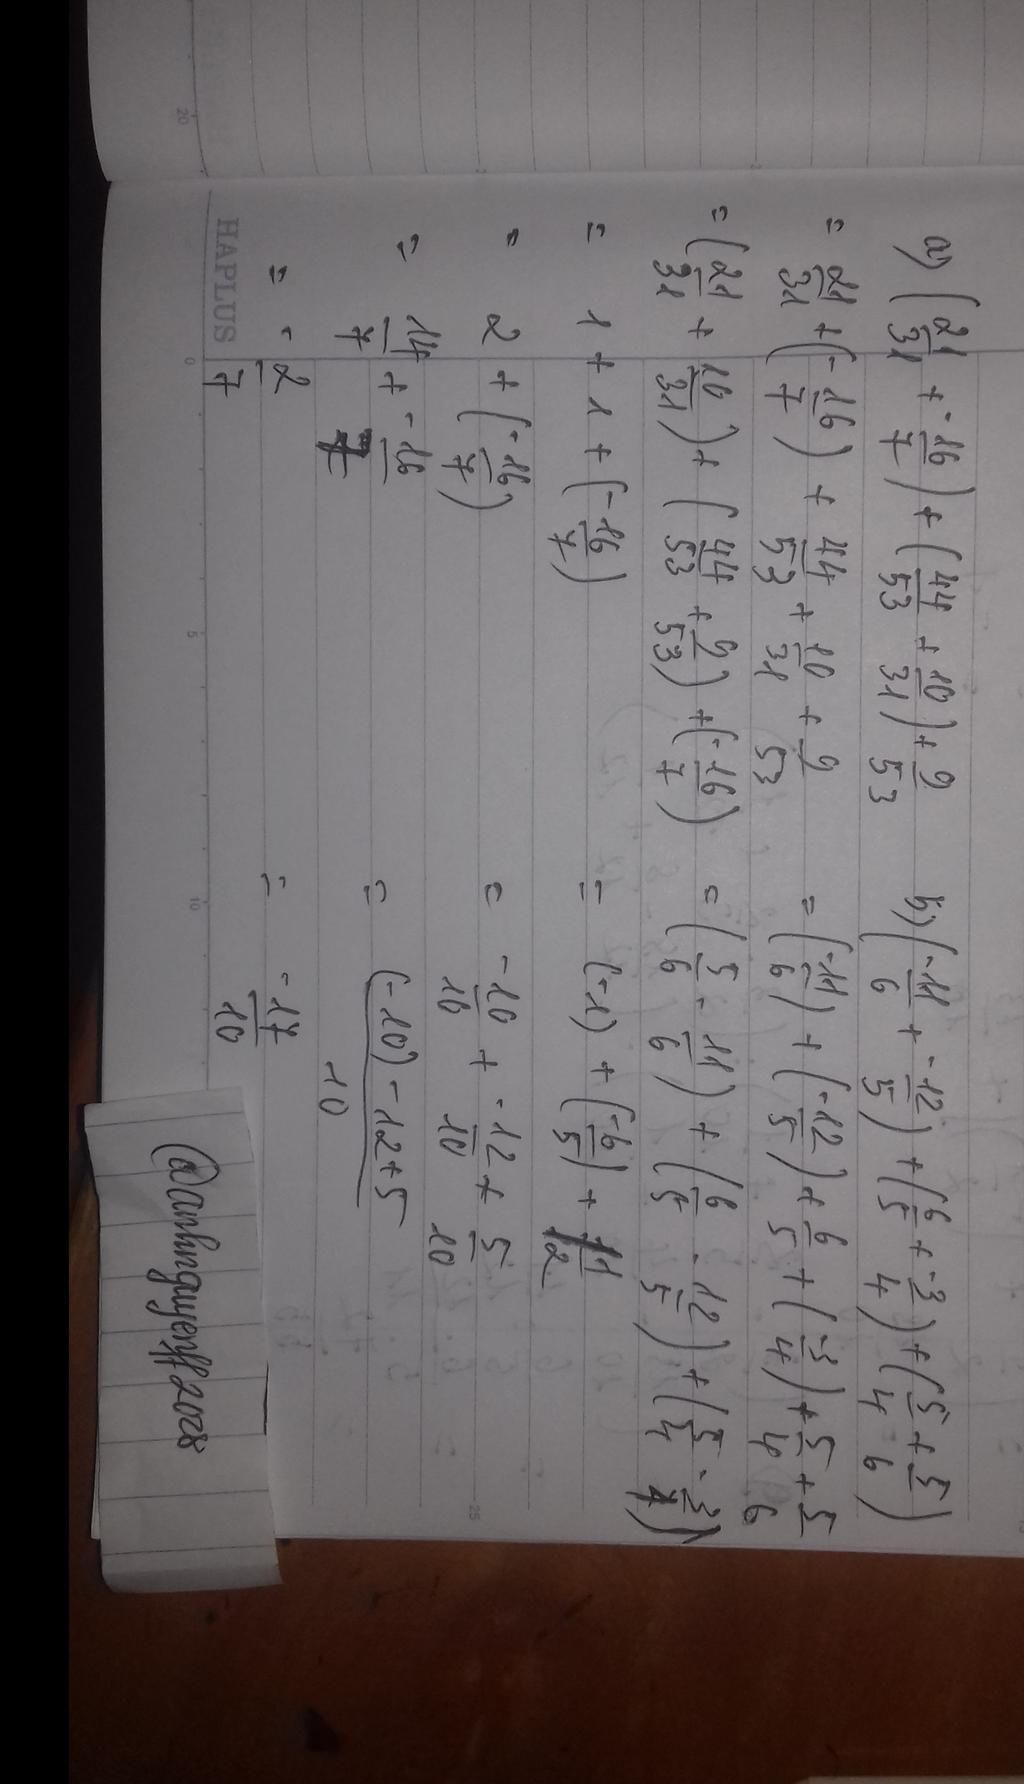 a) (21/31 + -16/7) + (44/53 + 10/31) + 9/53
= 21/31 + (-16/7) + 44/53 + 10/31 + 9/53
= (21/31 + 10/31) + (44/53 + 9/53) + (-16/7)
= 1 + 1 + (-16/7)
= 2 + (-16/7)
= 14/7 + -16/7
= -2/7
b) (-11/6 + -12/5) + (6/5 + -3/4) + (5/4 + 5/6)
= (-11/6) + (-12/5) + 6/5 + (-3/4) + 5/4 + 5/6
= (5/6 - 11/6) + (6/5 - 12/5) + (5/4 - 3/4)
= (-1) + (-6/5) + 1/2
= -10/10 + -12/10 + 5/10
= (-10) - 12 + 5/10
= -17/10
HAPLUS
0 5 10
20
25
@anhnguyenff2028